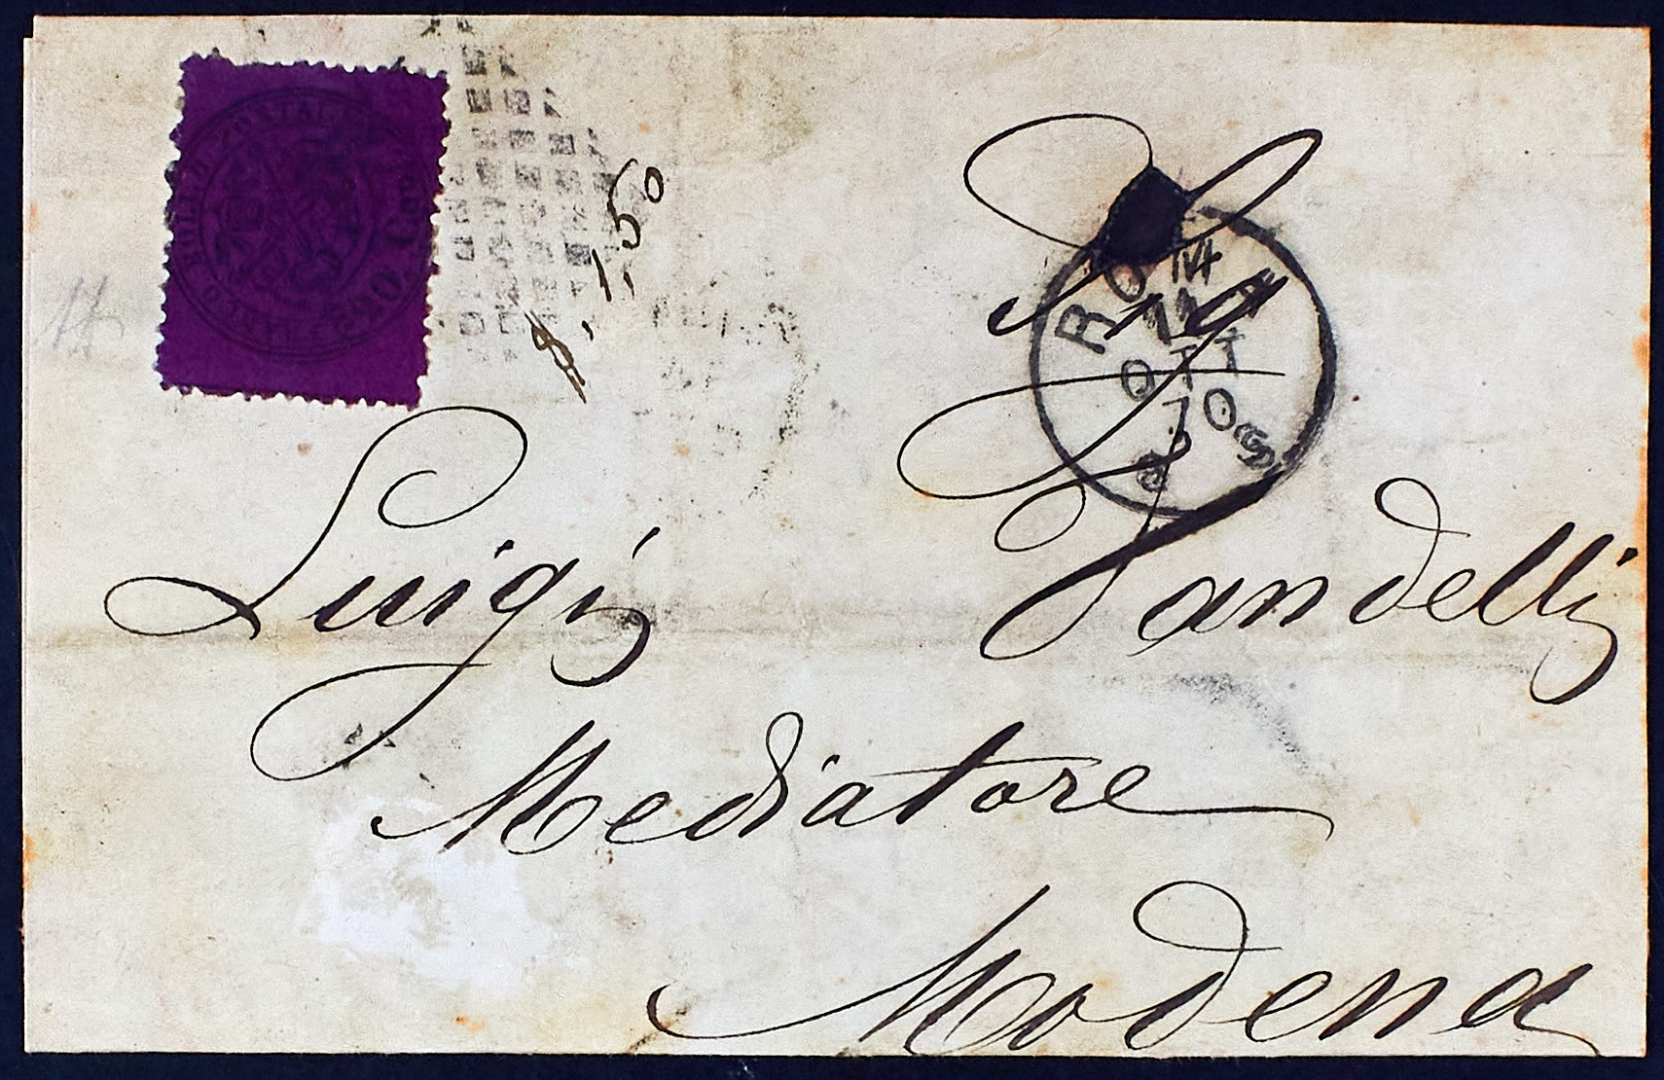 FRANCO BOLLO POSTALE 20 Cent
1,50
Sig
ROMA
14
OTT
70
S
Luigi Sandelli
Mediatore
Modena